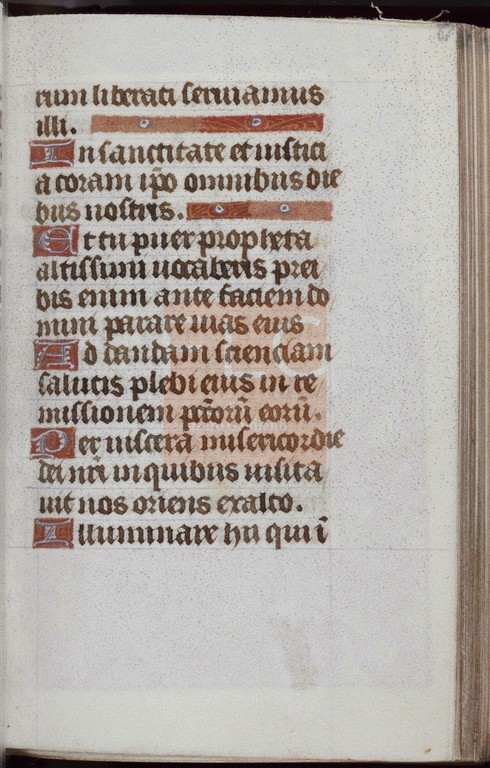 rum liberati seruiamus
illi.
In sanctitate et iustici
a coram ip̄o omnibus die
bus nostris.
Et tu puer propheta
altissimi uocaberis prei
bis enim ante faciem do
mini parare uias eius
Ad dandam scienciam
salutis plebi eius in re
missionem pc̄c̄orū eorū.
Per uiscera misericordie
dei nr̄i in quibus uisita
uit nos oriens exalto.
Illuminare hii qui ī